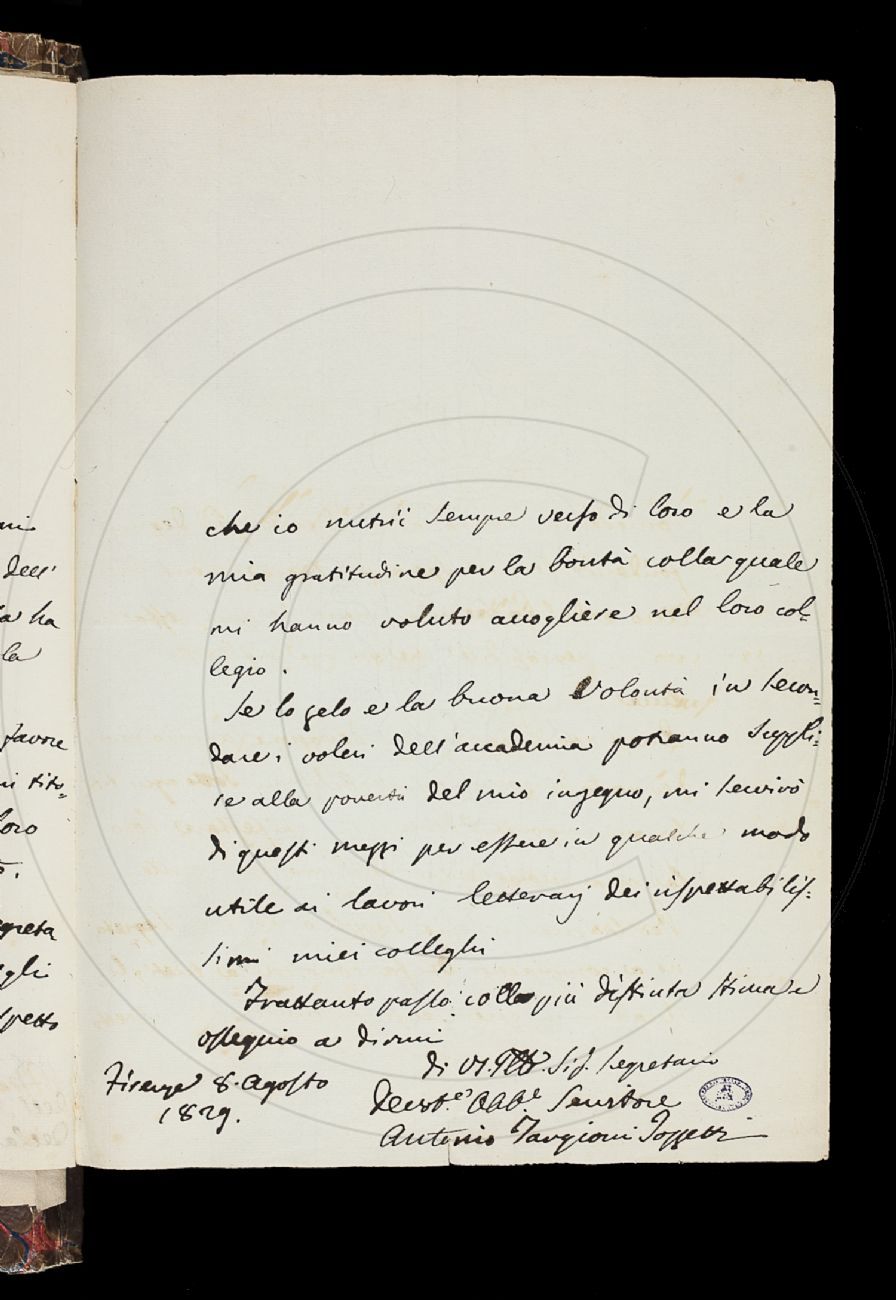 che io nutrii sempre verso di loro e la
mia gratitudine per la bontà colla quale
mi hanno voluto accogliere nel loro col=
legio.
Se lo zelo e la buona volontà in secon=
dare i voleri dell'accademia potranno suppli=
re alla povertà del mio ingegno, mi servirò
di questi mezzi per essere in qualche modo
utile ai lavori letterarj dei rispettabilis=
simi miei colleghi
Frattanto passo colla più distinta stima e
ossequio a dirmi
di VS. Sig. Segretario
Firenze 8. Agosto
1829.
Devot.e Obb.e Servitore
Antonio Targioni Tozzetti
mi
dell'
ha
la
favore
tito=
loro
greta
gli
spetto